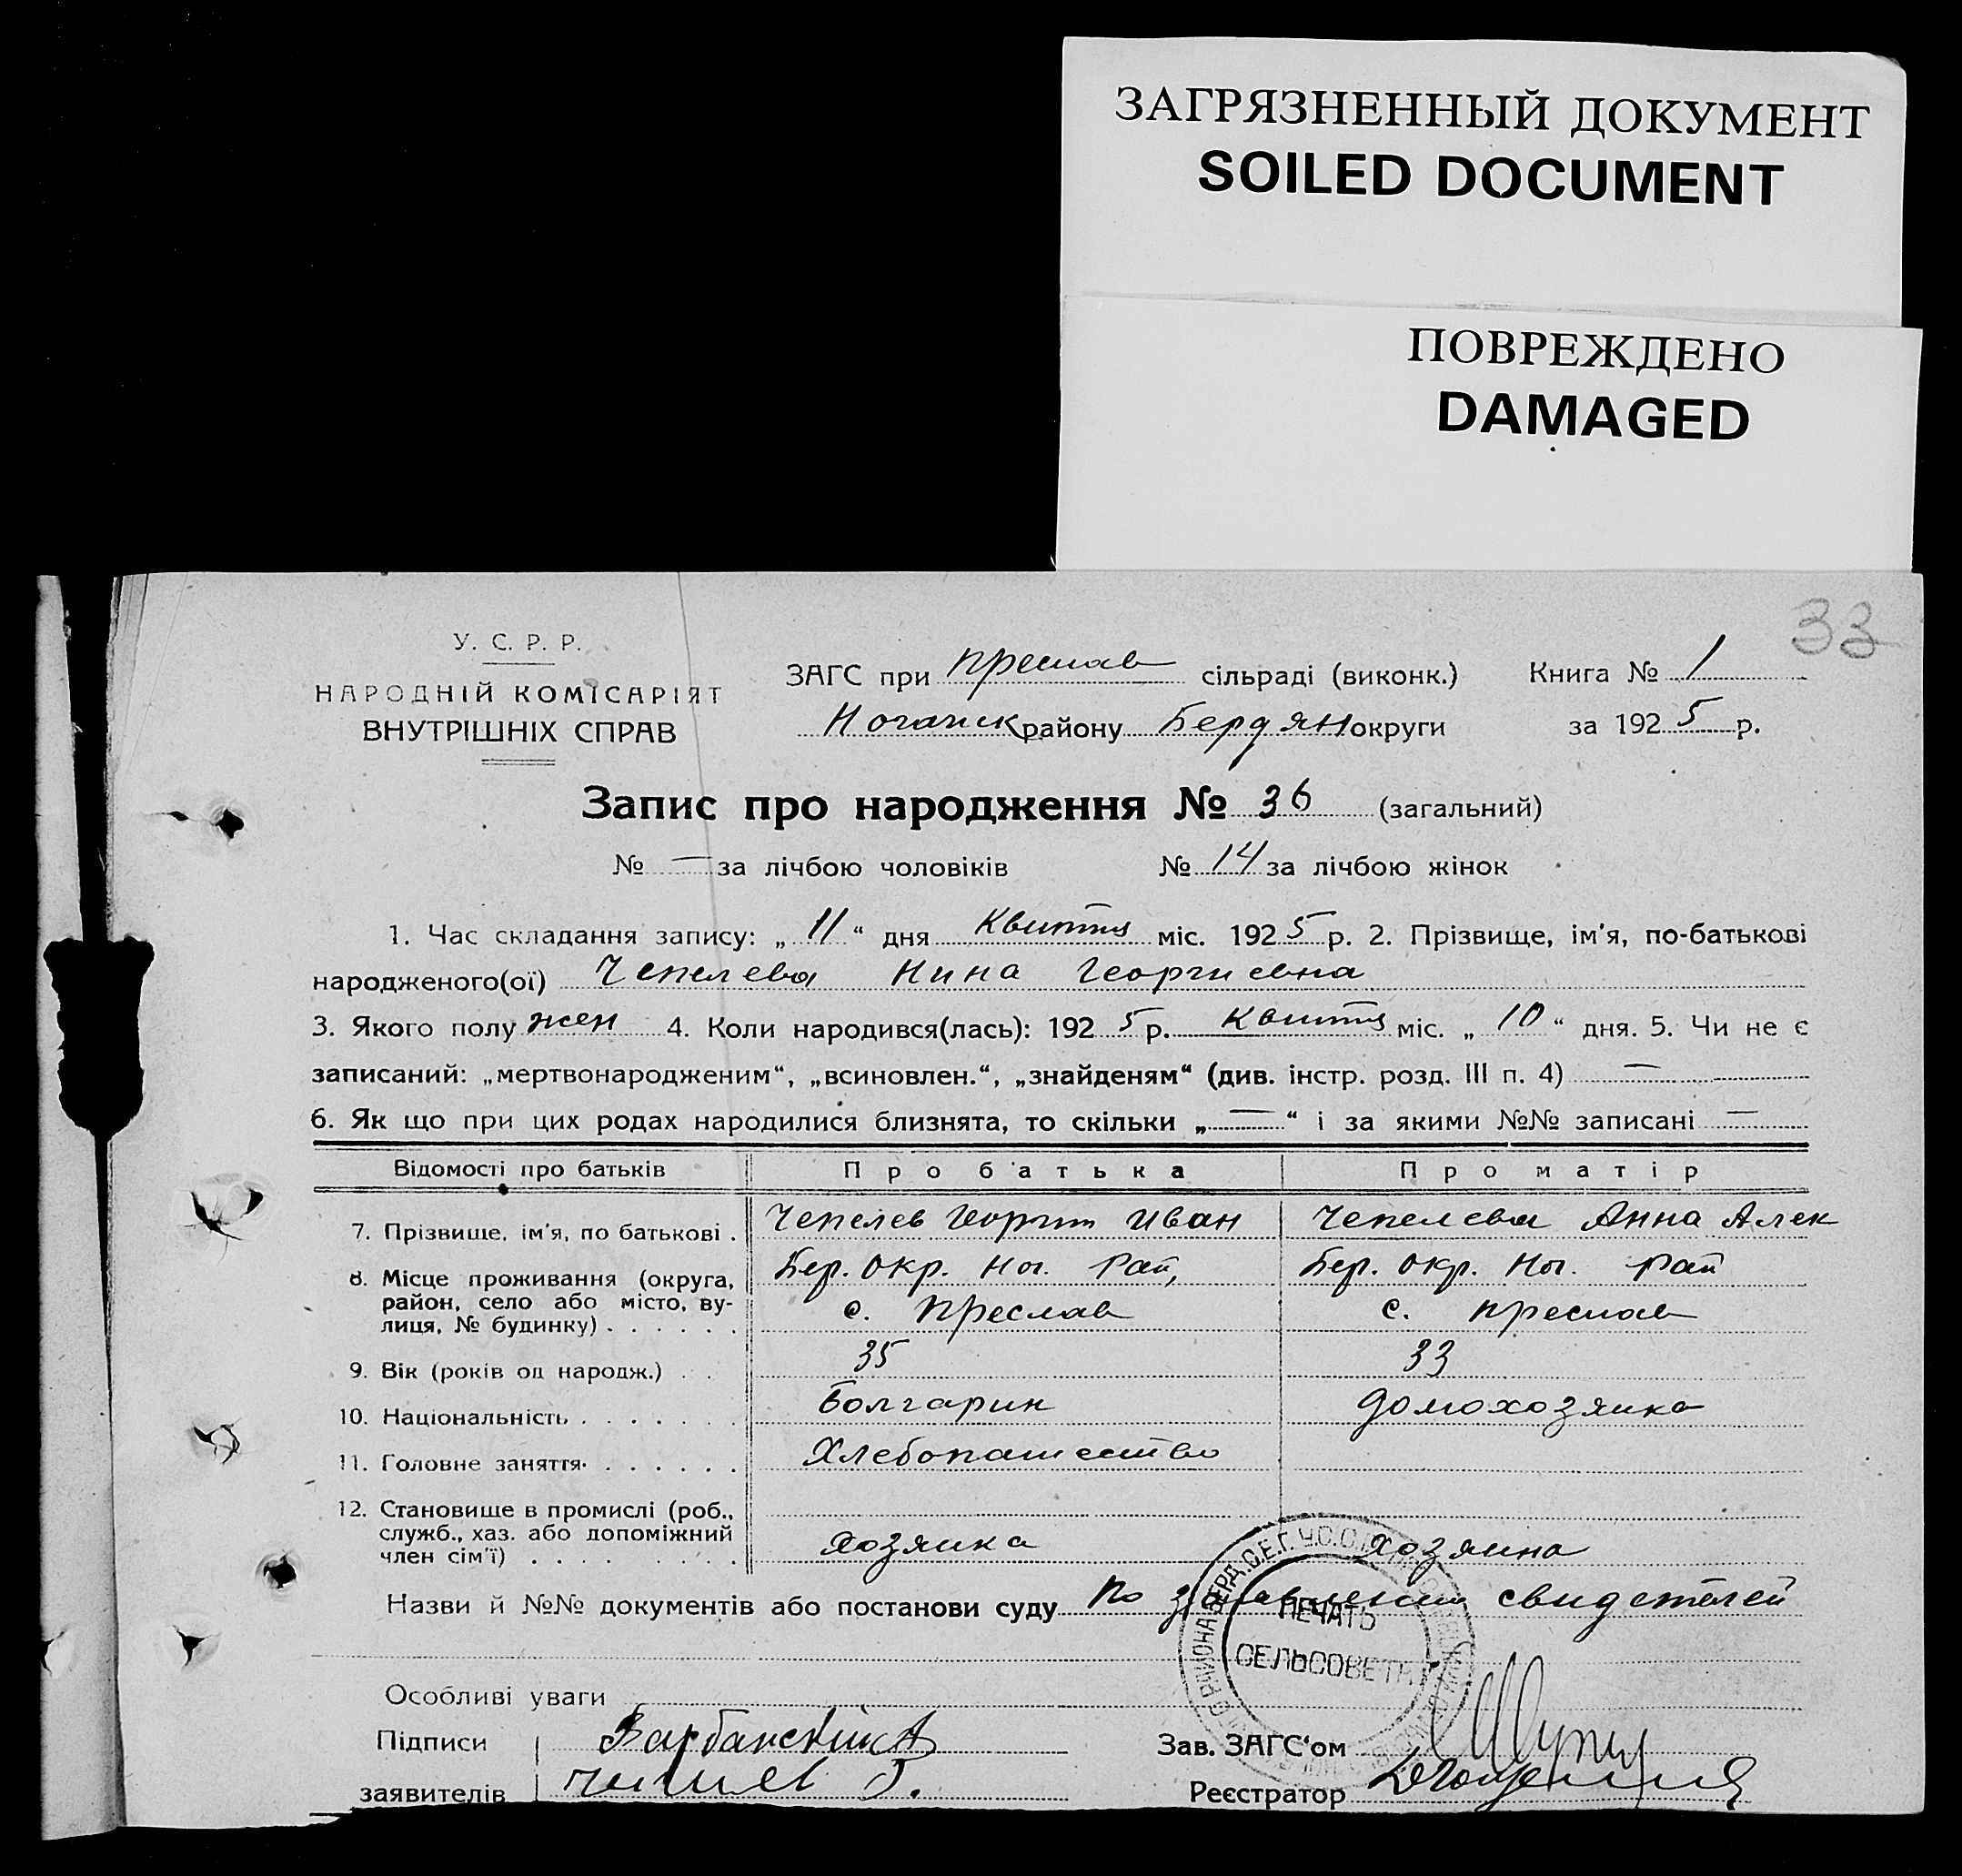 ЗАГРЯЗНЕННЫЙ ДОКУМЕНТ
SOILED DOCUMENT
ПОВРЕЖДЕНО
DAMAGED
33
У. С. Р. Р.
НАРОДНІЙ КОМІСАРІЯТ
ВНУТРІШНІХ СПРАВ
ЗАГС при Преслав сільраді (виконк.) Книга № 1
Ногайск району Бердян округи за 1925 р.
Запис про народження № 36 (загальний)
№ — за лічбою чоловіків № 14 за лічбою жінок
1. Час складання запису: „11“ дня Квитня міс. 1925 р. 2. Прізвище, ім'я, по-батькові
народженого(ої) Чепелева Нина Георгиевна
3. Якого полу жен 4. Коли народився(лась): 1925 р. Квитня міс. „10“ дня. 5. Чи не є
записаний: „мертвонародженим“, „всиновлен.“, „знайденям“ (див. інстр. розд. III п. 4) —
6. Як що при цих родах народилися близнята, то скільки „—“ і за якими №№ записані —
Відомості про батьків Про батька Про матір
7. Прізвище, ім'я, по батькові . Чепелев Георгий Иван Чепелева Анна Алек
8. Місце проживання (округа, Бер. Окр. Ног. Рай, Бер. Окр. Ног. Рай
район, село або місто, ву- с. Преслав с. Преслав
лиця, № будинку) . . . . . .
9. Вік (років од народж.) . . 35 33
10. Національність . . . . . . . Болгарин домохозяйка
11. Головне заняття . . . . . . Хлебопашество
12. Становище в промислі (роб.,
служб., хаз. або допоміжний
член сім'ї) . . . . . . . . . хозяйка хозяина
Назви й №№ документів або постанови суду по свидетелей
ПЕЧАТЬ
СЕЛЬСОВЕТА
Особливі уваги
Підписи
Зав. ЗАГС'ом
заявителів
Реєстратор